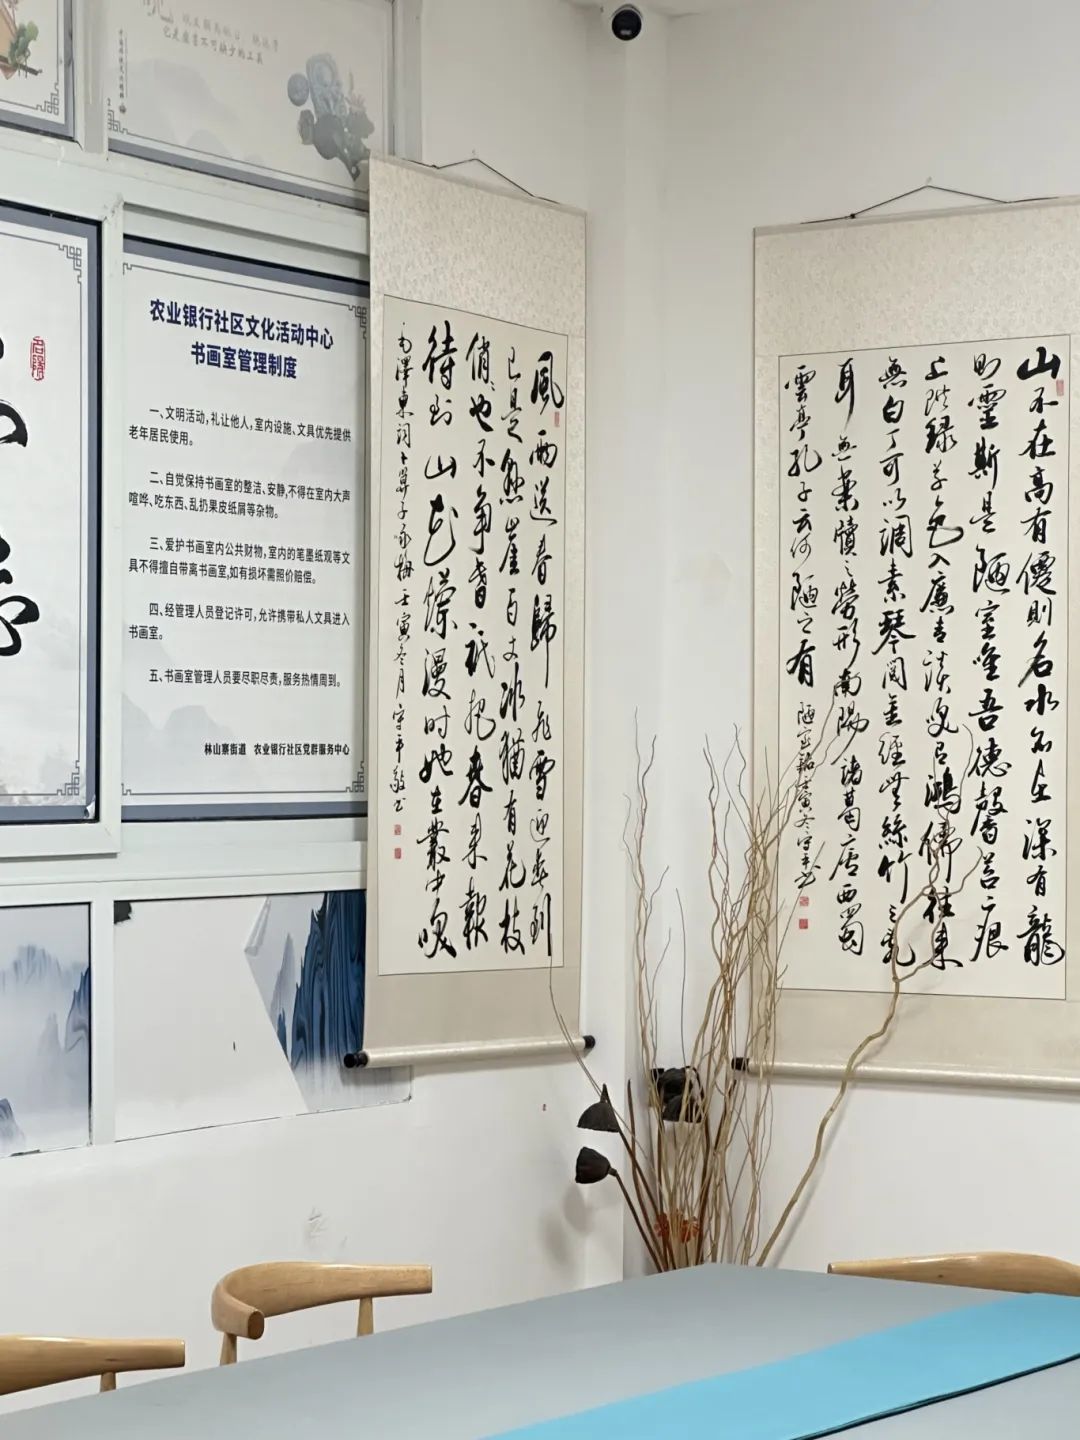 它是书画不可缺少的工具
农业银行社区文化活动中心
书画室管理制度
一、文明活动,礼让他人,室内设施、文具优先提供
老年居民使用。
二、自觉保持书画室的整洁、安静,不得在室内大声
喧哗、吃东西、乱扔果皮纸屑等杂物。
三、爱护书画室内公共财物,室内的笔墨纸观等文
具不得擅自带离书画室,如有损坏需照价赔偿。
四、经管理人员登记许可,允许携带私人文具进入
书画室。
五、书画室管理人员要尽职尽责,服务热情周到。
林山寨街道 农业银行社区党群服务中心
風雨送春歸飛雪迎春到
已是懸崖百丈冰猶有花枝
俏也不争春祇把春来報
待到山花爛漫时她在叢中咲
毛澤東词卜算子咏梅壬寅冬月守平敬书
山不在高有僊則名水不在深有龍
則靈斯是陋室唯吾德馨苔痕
上階绿草色入簾青談咲有鴻儒往来
無白丁可以調素琴閲金經無絲竹之亂
耳無案牘之勞形南陽諸葛廬西蜀
雲亭孔子云何陋之有
陋室銘壬寅冬守平书